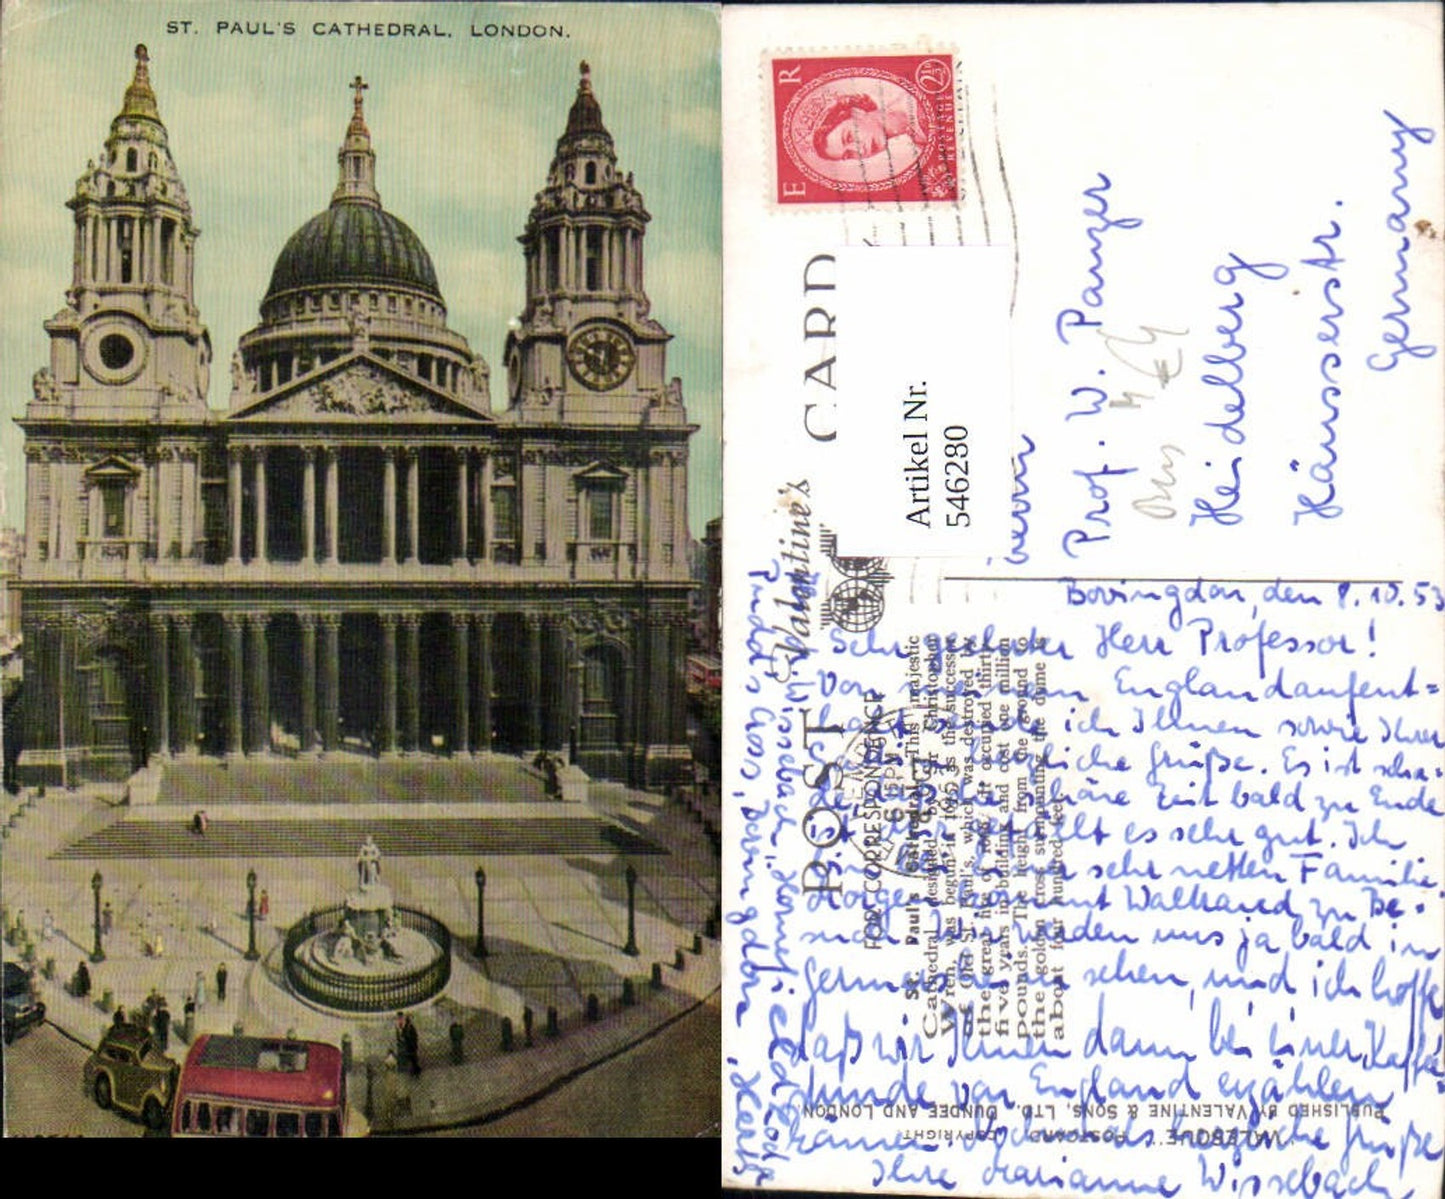 ST. PAUL'S CATHEDRAL, LONDON.
E R
2½D
POSTAGE REVENUE
POST CARD
Valentine's
FOR CORRESPONDENCE
Artikel Nr.
546280
Herrn
Prof. W. Panzer
Heidelberg
Häusserstr.
Germany
Bovingdon, den 8.10.53
Sehr geehrter Herr Professor!
Von meinem Englandaufent=
halt sende ich Ihnen sowie Ihrer
herzliche Grüße. Es ist scha=
de, daß die schöne Zeit bald zu Ende
ist. gefällt es sehr gut. Ich
bin bei einer sehr netten Familie.
Morgen kommt
Wir werden uns ja bald in
sehen, und ich hoffe,
daß wir Ihnen dann bei einer Kaffee=
stunde von England erzählen
können. Nochmals herzliche Grüße
Ihre Marianne Wissebach
St. Paul's Cathedral. This majestic
Cathedral designed by Sir Christopher
Wren, was begun in 1675 as the successor
of Old St. Paul's, which was destroyed by
the great fire of 1666. It occupied thirty
five years in building and cost one million
pounds. The height from the ground to
the golden cross surmounting the dome is
about four hundred feet.
"VALESQUE" POSTCARD COPYRIGHT
PUBLISHED BY VALENTINE & SONS, LTD. DUNDEE AND LONDON